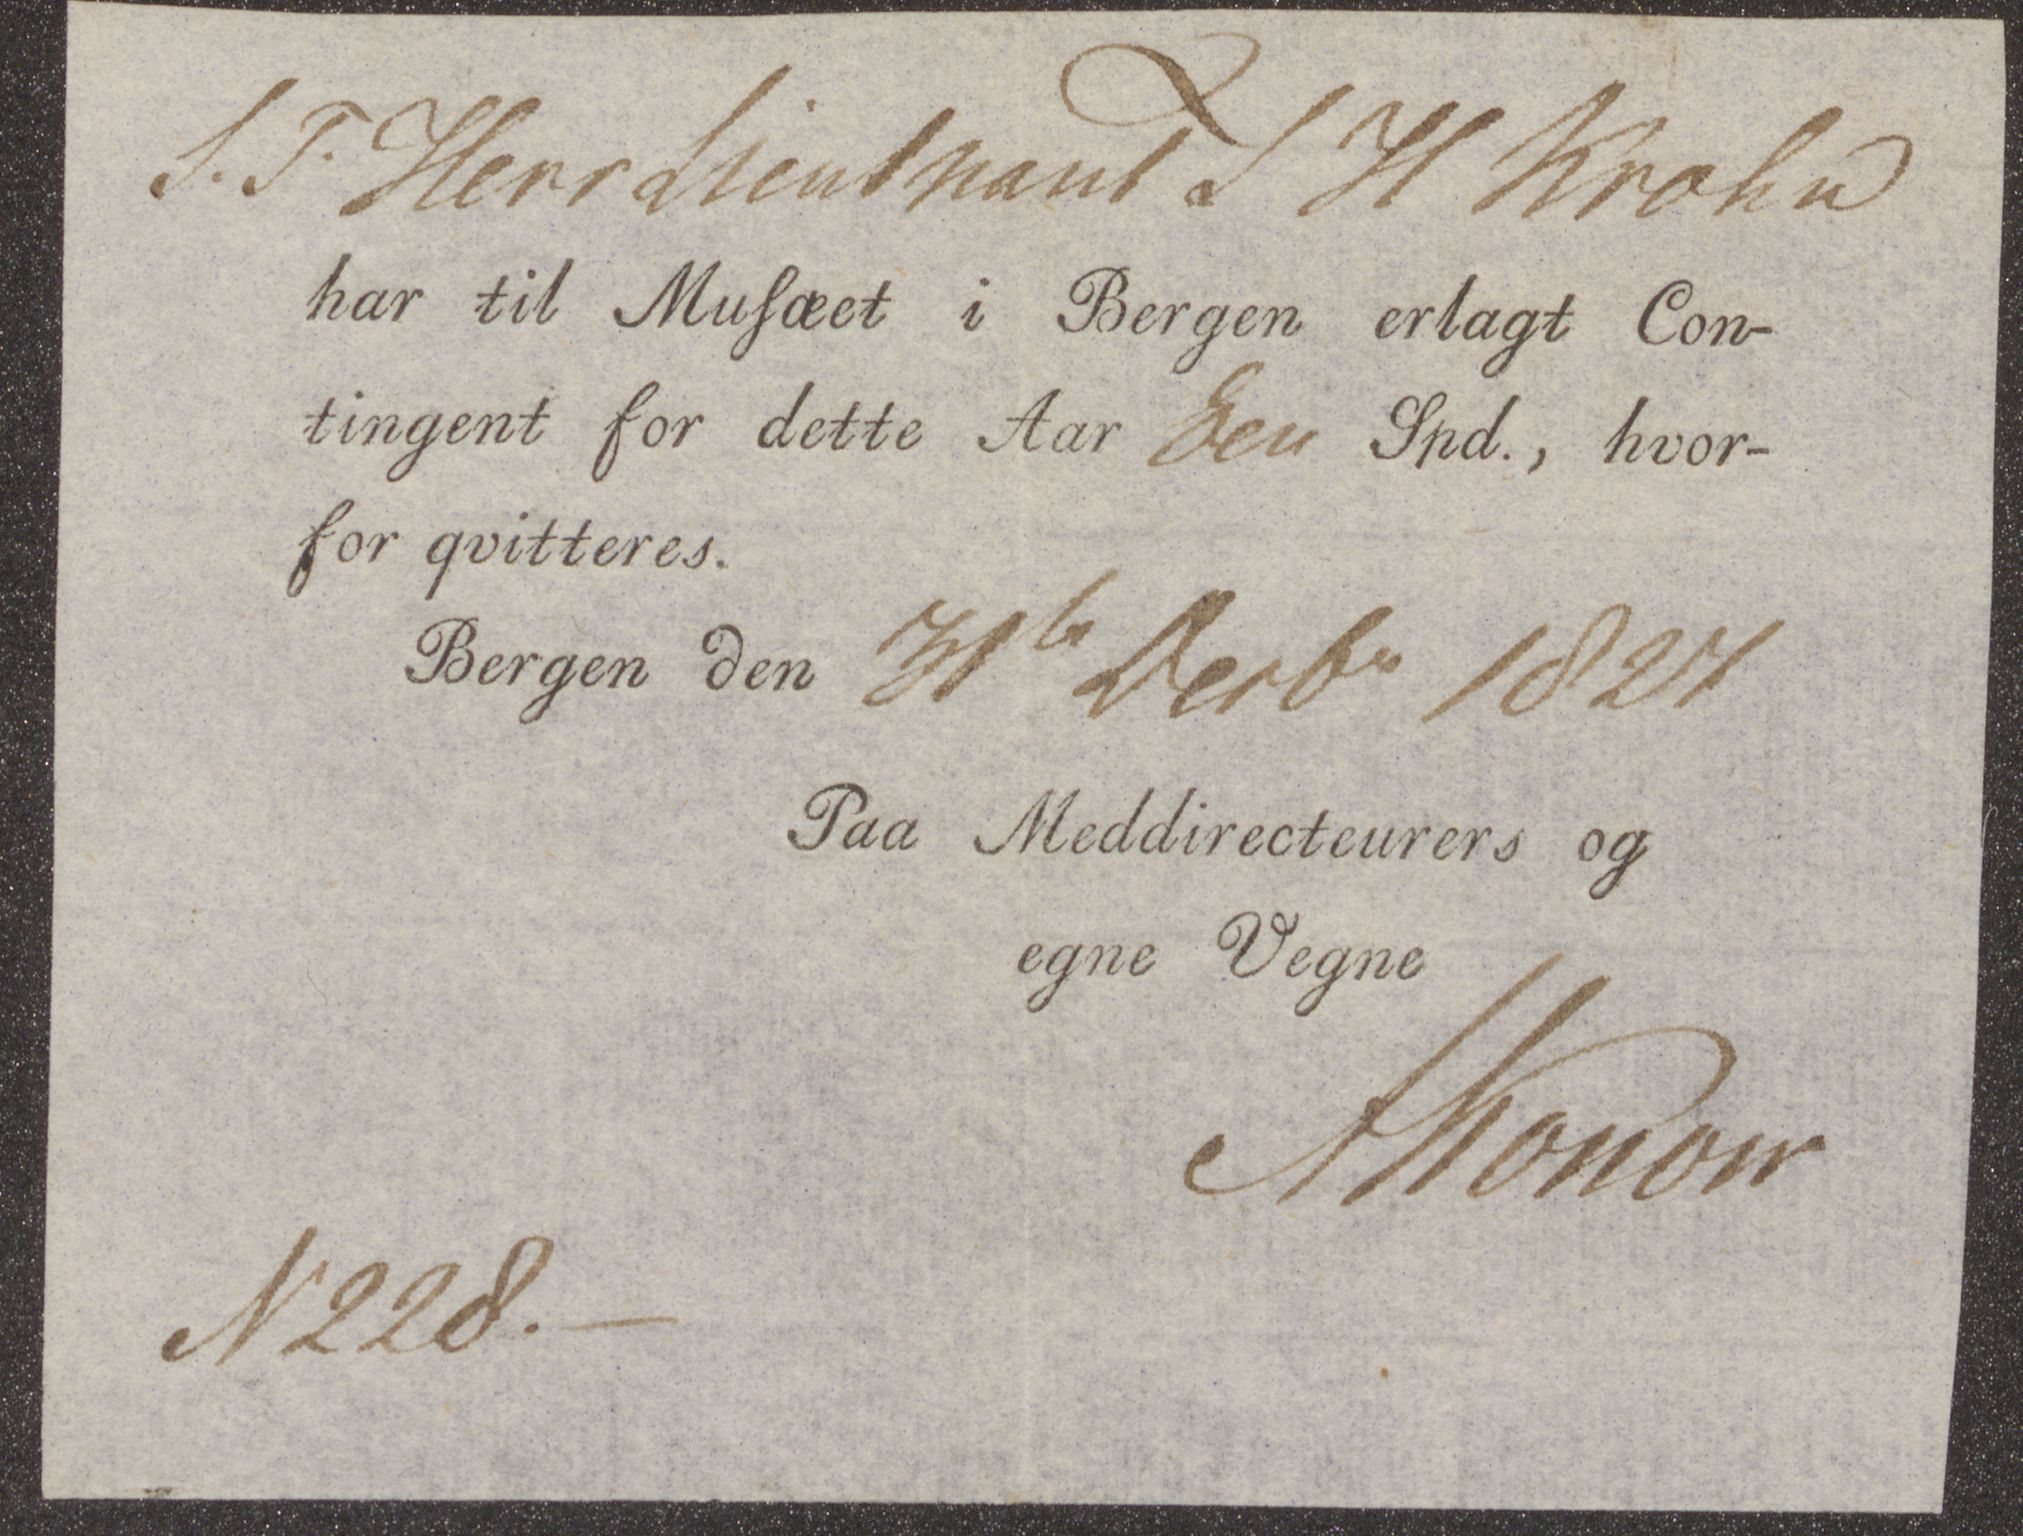 S. T. Herr Lieutnant J H Krohn
har til Muſæet i Bergen erlagt Con-
tingent for dette Aar Een Spd., hvor-
for qvitteres.
Bergen den 31te Decbr 1827
Paa Meddirecteurers og
egne Vegne
AKonow
N 228. —